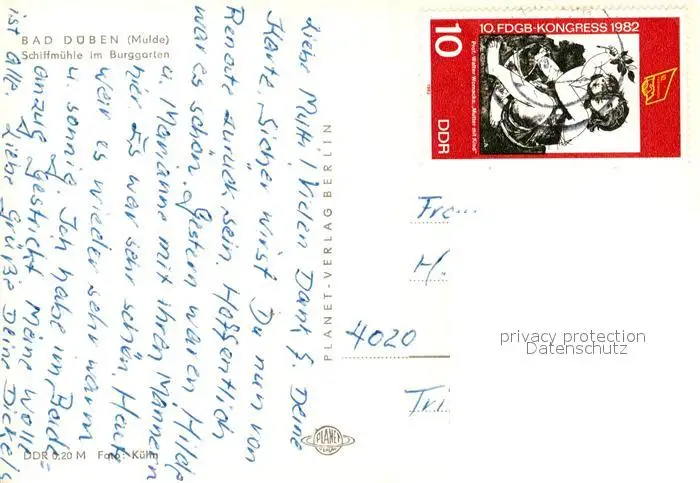 BAD DÜBEN (Mulde)
Schiffmühle im Burggarten
Liebe Mutti! Vielen Dank f. Deine
Karte. Sicher wirst Du nun von
Renate zurück sein. Hoffentlich
war es schön. Gestern waren Hilde
u. Marianne mit ihren Männern
hier. Es war sehr schön. Heute
war es wieder sehr warm
u. sonnig. Ich habe im Bade=
anzug gestrickt. Meine Wolle
ist alle. Liebe Grüße Deine
DDR 0,20 M Foto: Kühn
PLANET-VERLAG BERLIN
PLANET
VERLAG
10. FDGB-KONGRESS 1982
Prof. Walter Womacka, „Mutter mit Kind"
1982
10
DDR
Fra
H.
4020
privacy protection
Datenschutz